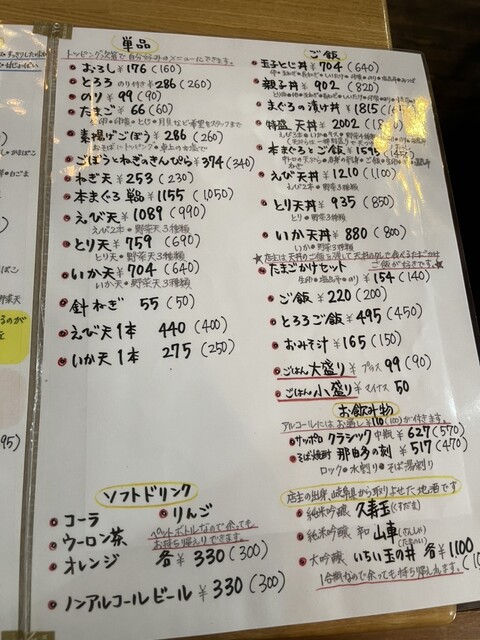 単品
トッピング次第で自分好みのメニューにできます。
おろし ¥176 (160)
とろろ のり付き ¥286 (260)
のり ¥99 (90)
たまご ¥66 (60)
素揚げごぼう ¥286 (260)
おそばにトッピング・卓上の方塩で
ごぼうとねぎのきんぴら ¥374 (340)
ねぎ天 ¥253 (230)
本まぐろ 単品 ¥1155 (1050)
えび天 ¥1089 (990)
えび2本・野菜天3種類
とり天 ¥759 (690)
とり天・野菜天3種類
いか天 ¥704 (640)
いか天・野菜天3種類
針ねぎ 55 (50)
えび天1本 440 (400)
いか天1本 275 (250)
ソフトドリンク
コーラ
りんご
ウーロン茶
オレンジ
ペットボトルなので余っても
お持ち帰りできます。
各¥330 (300)
ノンアルコールビール ¥330 (300)
ご飯
玉子とじ丼 ¥704 (640)
親子丼 ¥902 (820)
まぐろの漬け丼 ¥1815
特盛 天丼 ¥2002
本まぐろとろご飯
えび天丼 ¥1210 (1100)
えび2本・野菜3種類
とり天丼 ¥935 (850)
とり・野菜3種類
いか天丼 ¥880 (800)
いか・野菜3種類
たまごかけセット
ご飯が好きです。★
生卵・塩昆布・のり ¥154 (140)
ご飯 ¥220 (200)
とろろご飯 ¥495 (450)
おみそ汁 ¥165 (150)
ごはん大盛り プラス 99 (90)
ごはん小盛り マイナス 50
お飲み物
アルコールにはお通し¥110(100)が付きます。
サッポロ クラシック 中瓶 ¥627 (570)
そば焼酎 那由多の刻 ¥517 (470)
ロック・水割り・そば湯割り
店主の出身、岐阜県から取りよせた地酒です
純米吟醸 久寿玉(くすだま)
純米吟醸 辛口 山車(さんしゃ)
大吟醸 いちい玉の井 各¥1100
1合瓶なので余っても持ち帰れます。